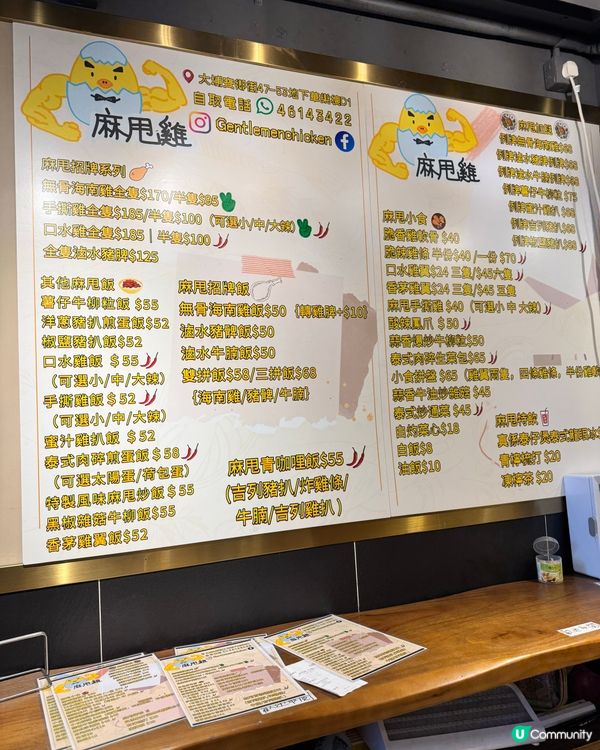 大埔寶鄉街47-53地下華樂樓D1
自取電話 46143422
Gentlemenchicken
麻甩雞
麻甩招牌系列
無骨海南雞全隻$170/半隻$95
手撕雞全隻$185/半隻$100 (可選小/中/大辣)
口水雞全隻$185 | 半隻$100
全隻滷水豬脾$125
其他麻甩飯
薯仔牛柳粒飯 $55
洋蔥豬扒煎蛋飯$52
椒鹽豬扒飯$52
口水雞飯 $55
(可選小/中/大辣)
手撕雞飯 $52
(可選小/中/大辣)
蜜汁雞扒飯 $52
泰式肉碎煎蛋飯$58
(可選太陽蛋/荷包蛋)
特製風味麻甩炒飯$55
黑椒雜菇牛柳飯$55
香茅雞翼飯$52
麻甩招牌飯
無骨海南雞飯$50 {轉雞脾+$10}
滷水豬脾飯$50
滷水牛腩飯$50
雙拼飯$58/三拼飯$68
{海南雞/豬脾/牛腩}
麻甩青咖哩飯$55
(吉列豬扒/炸雞條/
牛腩/吉列雞扒)
麻甩雞
麻甩小食
脆香雞軟骨 $40
脆辣雞條 半份$40/一份$70
口水雞翼$24 三隻/$45六隻
香茅雞翼$24 三隻/$45 五隻
麻甩手撕雞 $40 (可選小/中/大辣)
酸辣鳳爪 $50
蒜香爆炒牛柳粒$50
泰式肉碎生菜包$65
小食拼盤 $65
蒜香牛油炒雜菇 $45
泰式炒通菜 $45
自灼菜心$18
白飯$8
油飯$10
例牌薯仔牛柳粒 $75
麻甩特飲
青檸梳打 $20
凍檸茶 $20
Community